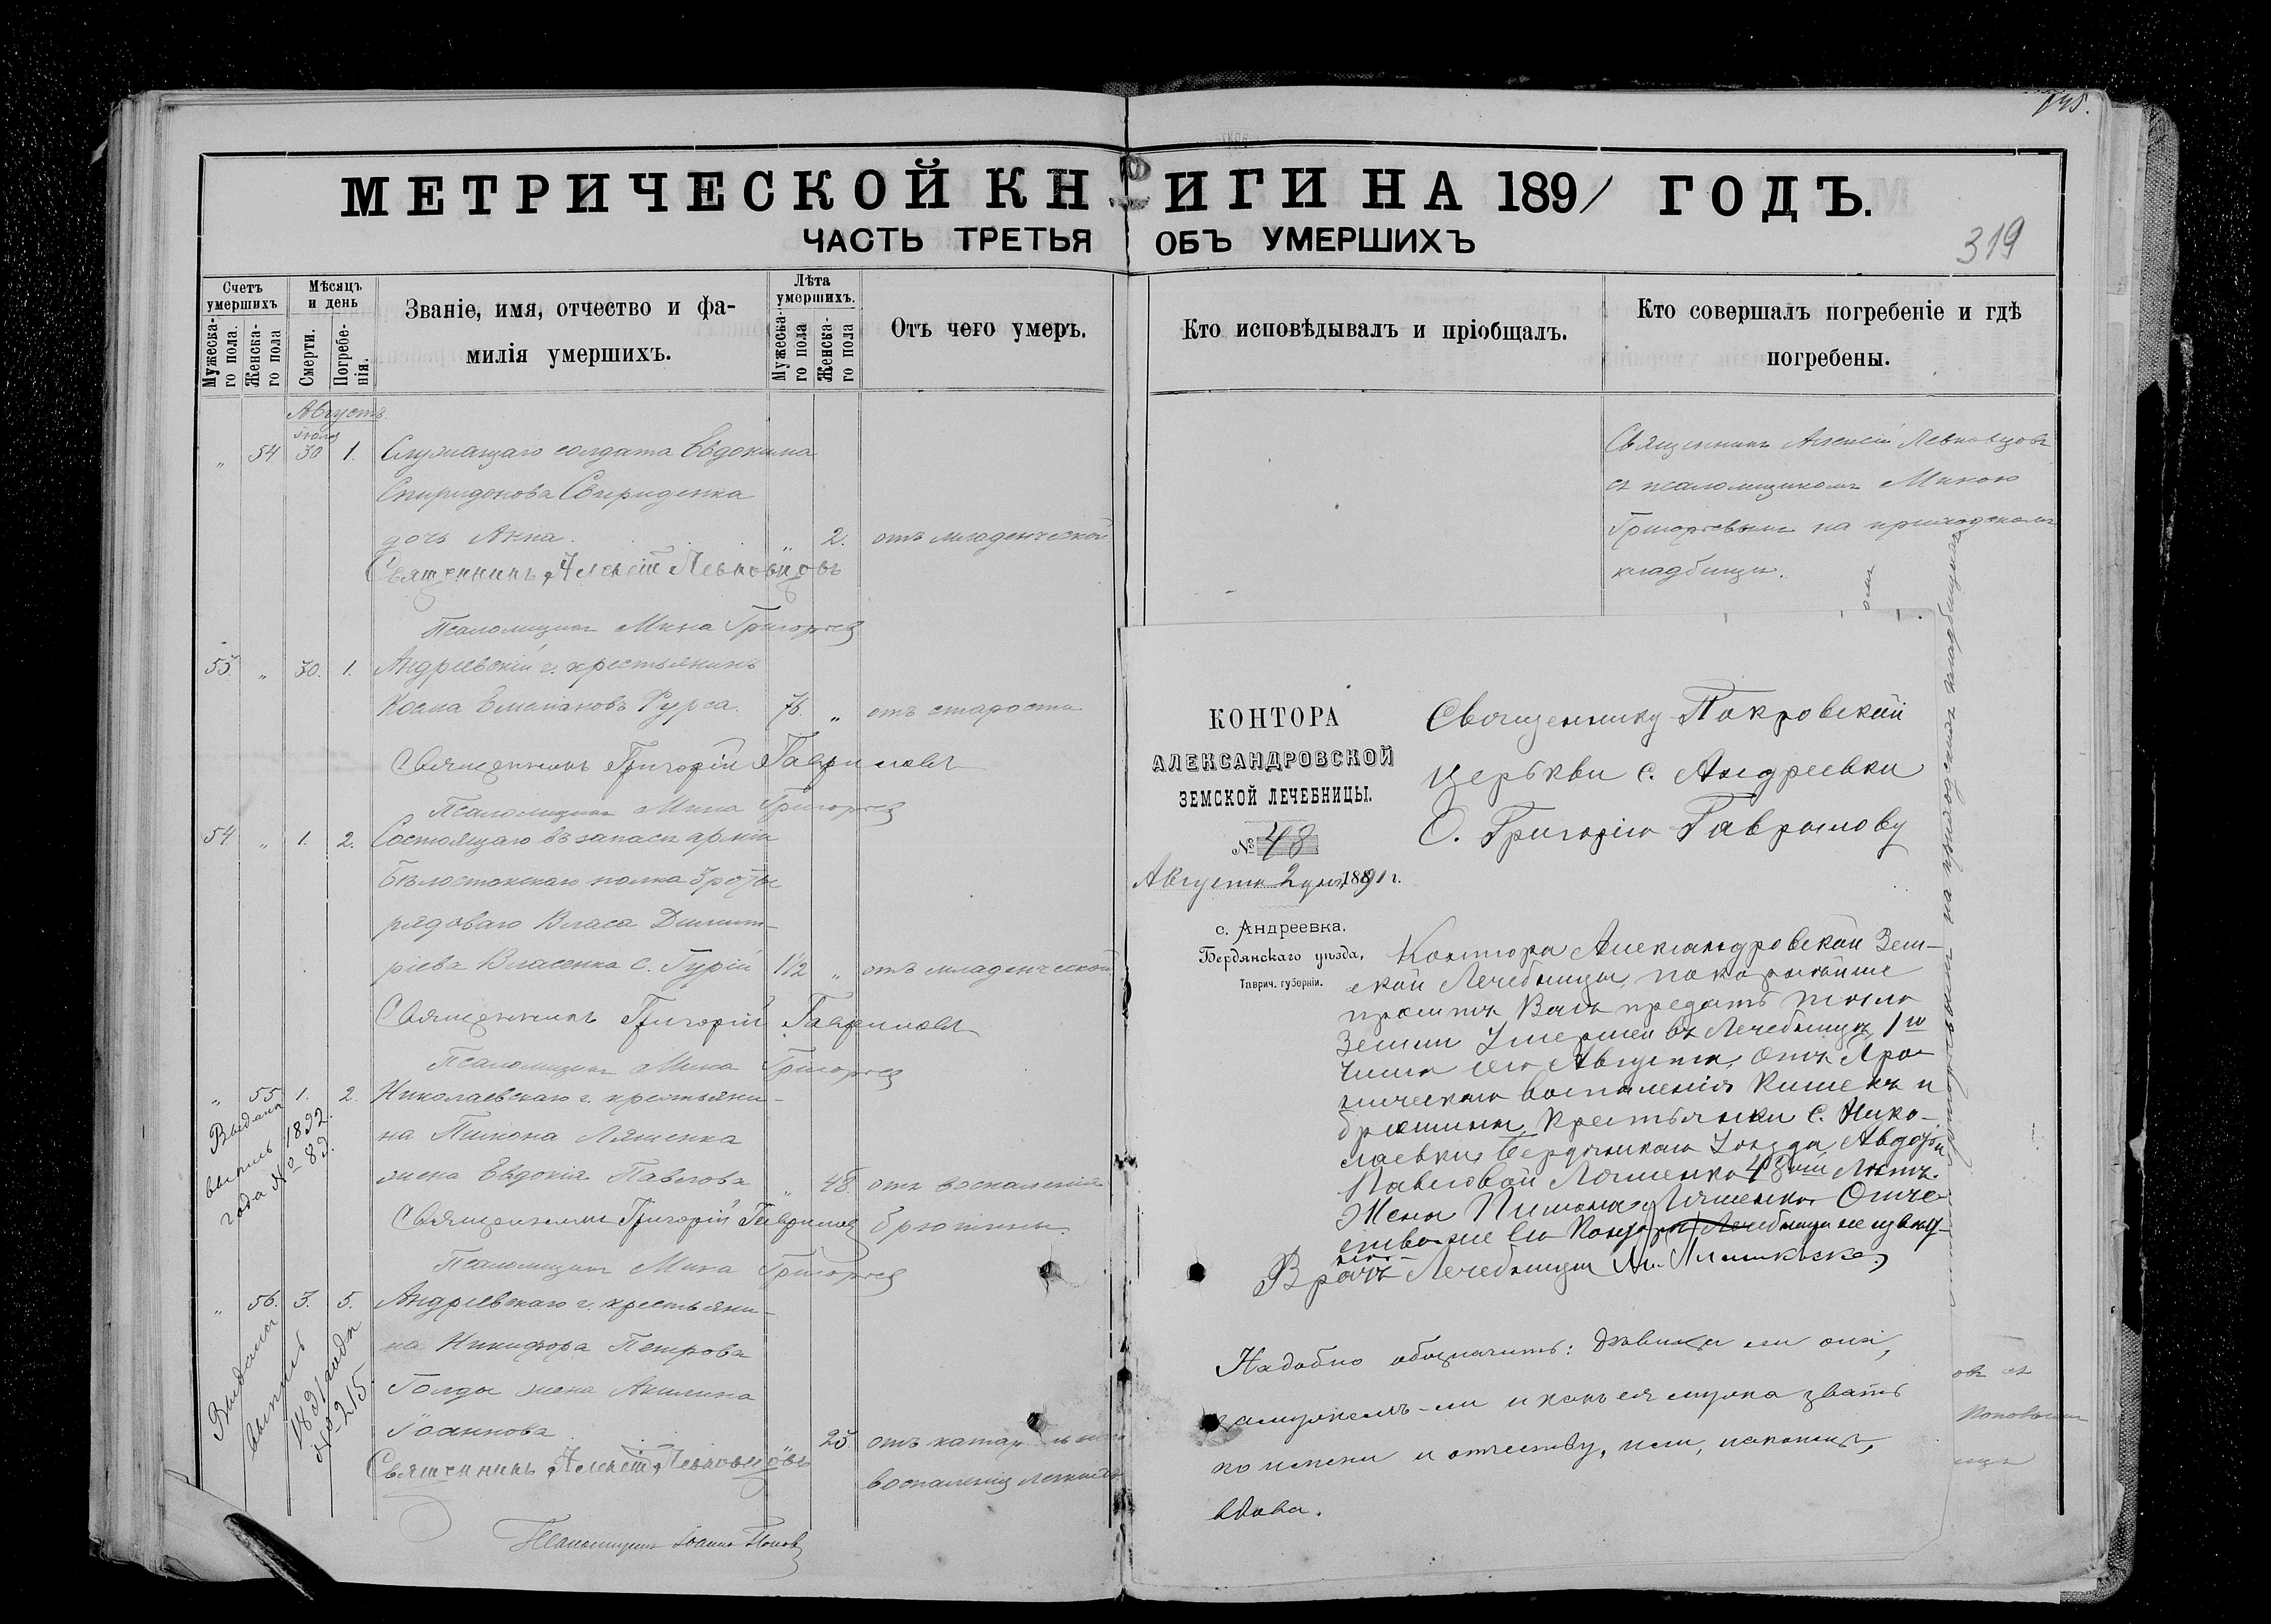 145.
МЕТРИЧЕСКОЙ КНИГИ НА 1891 ГОДЪ.
ЧАСТЬ ТРЕТЬЯ ОБЪ УМЕРШИХЪ
319
Счетъ умершихъ
Мужеска-го пола.
Женска-го пола
Мѣсяцъ и день
Смерти.
Погребе-нія.
Званіе, имя, отчество и фа-
милія умершихъ.
Лѣта умершихъ.
Мужеска-го пола
Женска-го пола
Отъ чего умеръ.
Кто исповѣдывалъ и пріобщалъ.
Кто совершалъ погребеніе и гдѣ
погребены.
Августъ.
Іюля
„ 54 30 1. Служащаго солдата Евдокима
Спиридонова Свириденка
дочь Анна. „ 2. отъ младенческой
Священникъ Алексій Левковцовъ
Псаломщикъ Мина Григорьев
Священникъ Алексій Левковцовъ
съ псаломщикомъ Миною
Григорьевымъ на приходскомъ
кладбищѣ.
53. „ 30. 1. Андреевскій г. крестьянинъ
Косма Емеліановъ Фурса. 76. „ отъ старости
Священникъ Григорій Гавриловъ
Псаломщикъ Мина Григорьев
54 „ 1. 2. Состоящаго въ запасѣ арміи
Бѣлостокскаго полка 3 роты
рядоваго Власа Димит-
ріева Власенка с. Гурій 1/2 „ отъ младенческой
Священникъ Григорій Гавриловъ
Псаломщикъ Мина Григорьев
„ 55 1. 2. Николаевскаго г. крестьяни-
на Пимона Ляшенка
жена Евдокія Павлова „ 48. отъ воспаленія
Священникъ Григорій Гаврилов брюшины.
Псаломщикъ Мина Григорьев
Выдана
выпись 1892
года № 89.
„ 56. 3. 5. Андреевскаго г. крестьяни-
на Никифора Петрова
Голды жена Акилина
Іоаннова „ 25 отъ катар льнаго
Священникъ Алексій Левковцовъ воспаленія легкихъ
Псаломщикъ Іоаннъ Попов
Выдана
выпись
1891 года
№ 215.
КОНТОРА
АЛЕКСАНДРОВСКОЙ
ЗЕМСКОЙ ЛЕЧЕБНИЦЫ.
№ 48
Августа 2 дня 1891 г.
с. Андреевка.
Бердянскаго уѣзда,
Таврич. губерніи.
Священнику Покровской
церькви с. Андреевки
О. Григорію Гаврилову
Контора Александровской Зем-
ской Лечебницы покорнѣйше
проситъ Васъ предать тѣло
Земли Умершей въ Лечебницѣ 1го
числа сего Августа, отъ Хро-
ническаго воспаленія Кишекъ и
брюшины, Крестьянки С. Нико-
лаевки Бердянскаго Уѣзда Авдотьи
Павловой Ляшенко 48ми Лѣтъ.
Жена Пимона Ляшенко. Отче-
ство же его Конторѣ Лечебницы не извѣст-
но.
Врачъ Лечебницы
Надобно обозначить: Дѣвица ли она,
замужемъ-ли и какъ ея мужа звать
по имени и отчеству, или, наконецъ,
вдова.
на приходскомъ кладбищѣ
омъ
овъ съ
Поповымъ